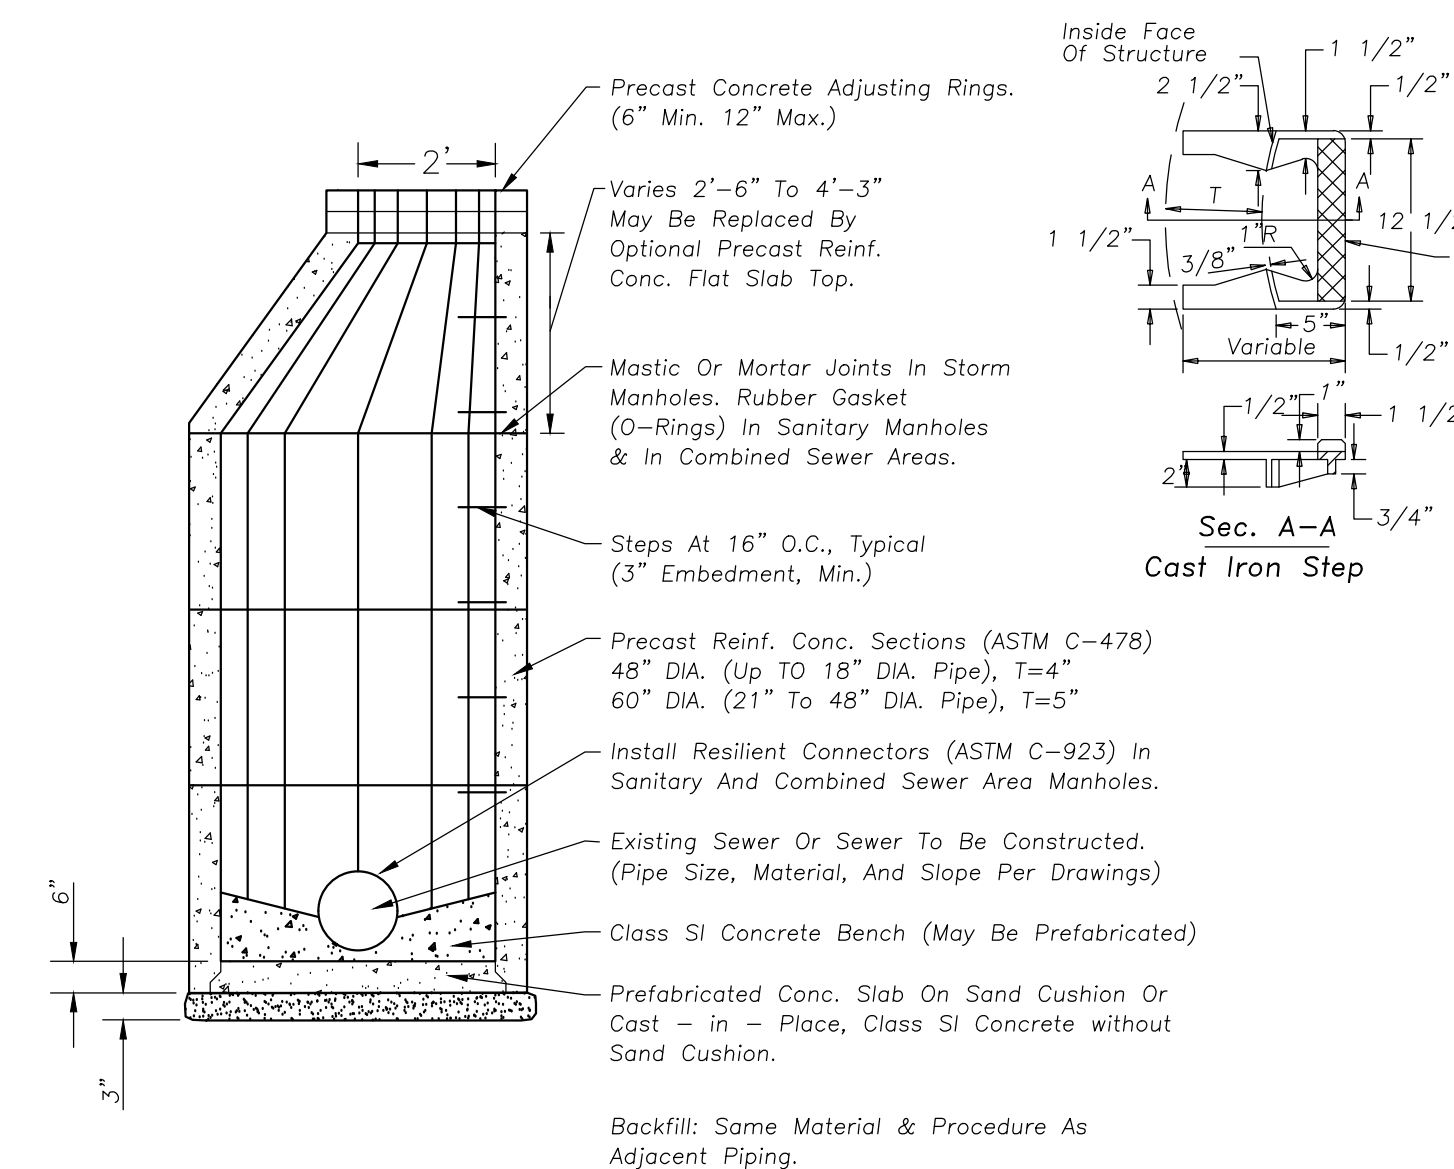 Precast Concrete Adjusting Rings.
(6" Min. 12" Max.)
2'
Varies 2'-6" To 4'-3"
May Be Replaced By
Optional Precast Reinf.
Conc. Flat Slab Top.
Mastic Or Mortar Joints In Storm
Manholes. Rubber Gasket
(O-Rings) In Sanitary Manholes
& In Combined Sewer Areas.
Steps At 16" O.C., Typical
(3" Embedment, Min.)
Precast Reinf. Conc. Sections (ASTM C-478)
48" DIA. (Up TO 18" DIA. Pipe), T=4"
60" DIA. (21" To 48" DIA. Pipe), T=5"
Install Resilient Connectors (ASTM C-923) In
Sanitary And Combined Sewer Area Manholes.
Existing Sewer Or Sewer To Be Constructed.
(Pipe Size, Material, And Slope Per Drawings)
Class SI Concrete Bench (May Be Prefabricated)
Prefabricated Conc. Slab On Sand Cushion Or
Cast - in - Place, Class SI Concrete without
Sand Cushion.
Backfill: Same Material & Procedure As
Adjacent Piping.
6"
3"
Inside Face
Of Structure
1 1/2"
2 1/2"
1/2"
A
A
T
12 1/
1 1/2"
1"R
3/8"
5"
Variable
1/2"
1"
1/2"
1 1/2
2'
3/4"
Sec. A-A
Cast Iron Step